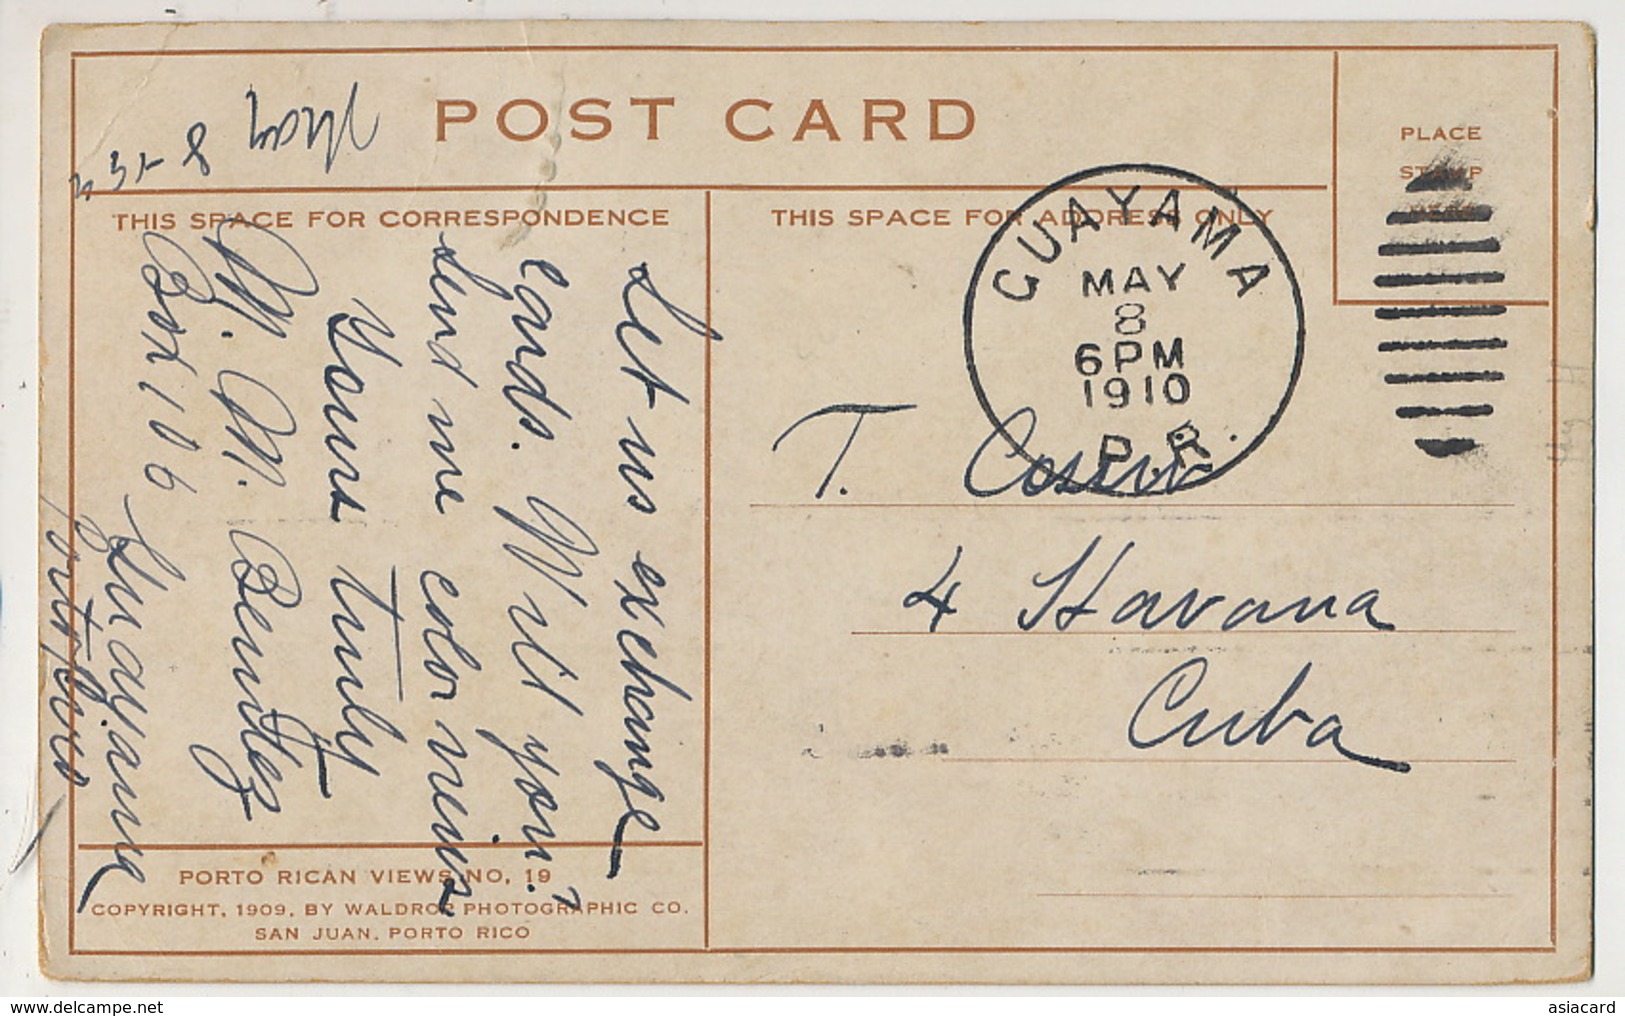 POST CARD
May 8
PLACE
STAMP
THIS SPACE FOR CORRESPONDENCE
THIS SPACE FOR ADDRESS ONLY
GUAYAMA
MAY
8
6 PM
1910
P.R.
Let us exchange
cards. Will you?
Send me color views
Yours truly
M. M. Benitez
Box 106 Guayama
Porto Rico
T.
4 Havana
Cuba
PORTO RICAN VIEWS NO, 19
COPYRIGHT, 1909, BY WALDROP PHOTOGRAPHIC CO.
SAN JUAN, PORTO RICO
www.delcampe.net
asiacard